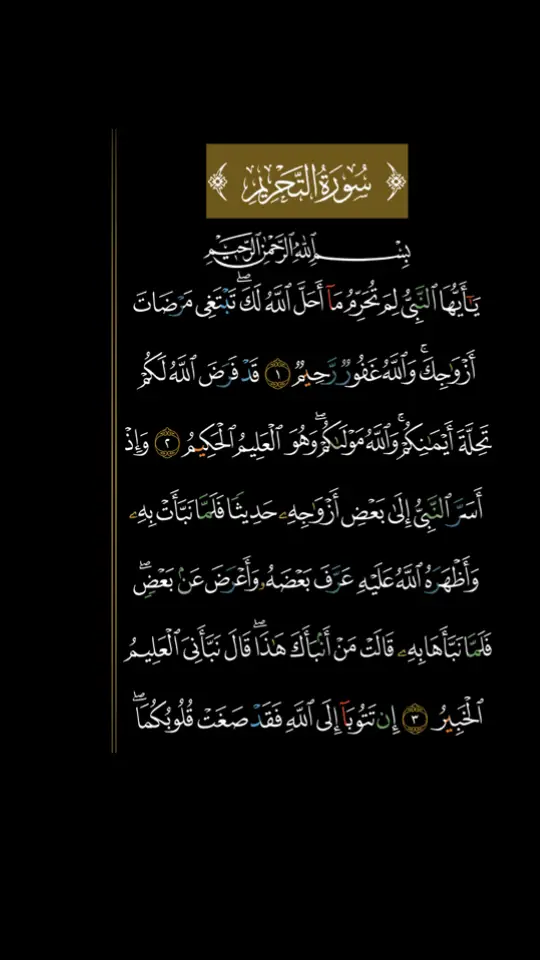 سُورَةُ التَّحْرِيمِ
بِسْمِ ٱللَّهِ ٱلرَّحْمَٰنِ ٱلرَّحِيمِ
يَـٰٓأَيُّهَا ٱلنَّبِىُّ لِمَ تُحَرِّمُ مَآ أَحَلَّ ٱللَّهُ لَكَ ۖ تَبْتَغِى مَرْضَاتَ
أَزْوَٰجِكَ ۚ وَٱللَّهُ غَفُورٌ رَّحِيمٌ ١ قَدْ فَرَضَ ٱللَّهُ لَكُمْ
تَحِلَّةَ أَيْمَـٰنِكُمْ ۚ وَٱللَّهُ مَوْلَىٰكُمْ ۖ وَهُوَ ٱلْعَلِيمُ ٱلْحَكِيمُ ٢ وَإِذْ
أَسَرَّ ٱلنَّبِىُّ إِلَىٰ بَعْضِ أَزْوَٰجِهِۦ حَدِيثًا فَلَمَّا نَبَّأَتْ بِهِۦ
وَأَظْهَرَهُ ٱللَّهُ عَلَيْهِ عَرَّفَ بَعْضَهُۥ وَأَعْرَضَ عَنۢ بَعْضٍ ۖ
فَلَمَّا نَبَّأَهَا بِهِۦ قَالَتْ مَنْ أَنۢبَأَكَ هَـٰذَا ۖ قَالَ نَبَّأَنِىَ ٱلْعَلِيمُ
ٱلْخَبِيرُ ٣ إِن تَتُوبَآ إِلَى ٱللَّهِ فَقَدْ صَغَتْ قُلُوبُكُمَا ۖ